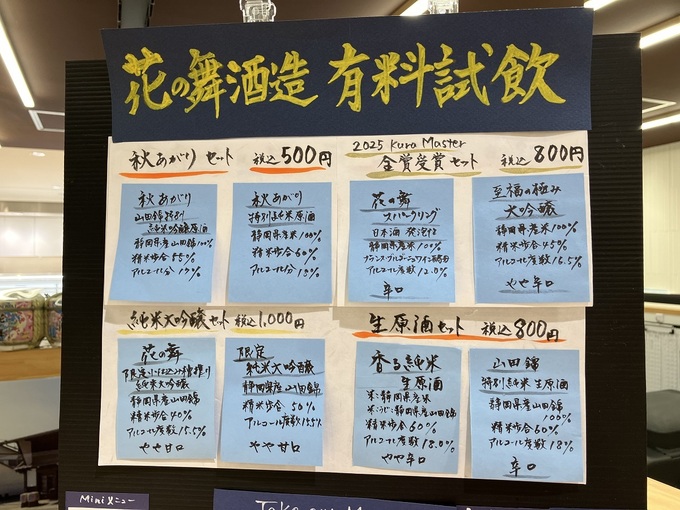 花の舞酒造 有料試飲
秋あがり セット 税込500円
秋あがり
山田錦特別
純米吟醸原酒
静岡県産山田錦100%
精米歩合55%
アルコール分 19%
秋あがり
特別純米原酒
静岡県産米100%
精米歩合60%
アルコール分 18%
2025 Kura Master
金賞受賞セット 税込 800円
花の舞
スパークリング
日本酒 発泡性
静岡県産米100%
フランス・ブルゴーニュワイン酵母
アルコール度数12.0%
辛口
至福の極み
大吟醸
静岡県産米100%
精米歩合45%
アルコール度数16.5%
やや辛口
純米大吟醸セット 税込1,000円
花の舞
限定
純米大吟醸
静岡県産山田錦
精米歩合40%
アルコール度数15.5%
やや甘口
限定
純米大吟醸
静岡県産山田錦
精米歩合 50%
アルコール度数
やや甘口
生原酒セット 税込 800円
香る純米
生原酒
米:静岡県産米
米こうじ:静岡県産山田錦
精米歩合60%
アルコール度数18.0%
やや辛口
山田錦
特別純米 生原酒
静岡県産山田錦
100%
精米歩合60%
アルコール度数18%
辛口
Miniメニュー